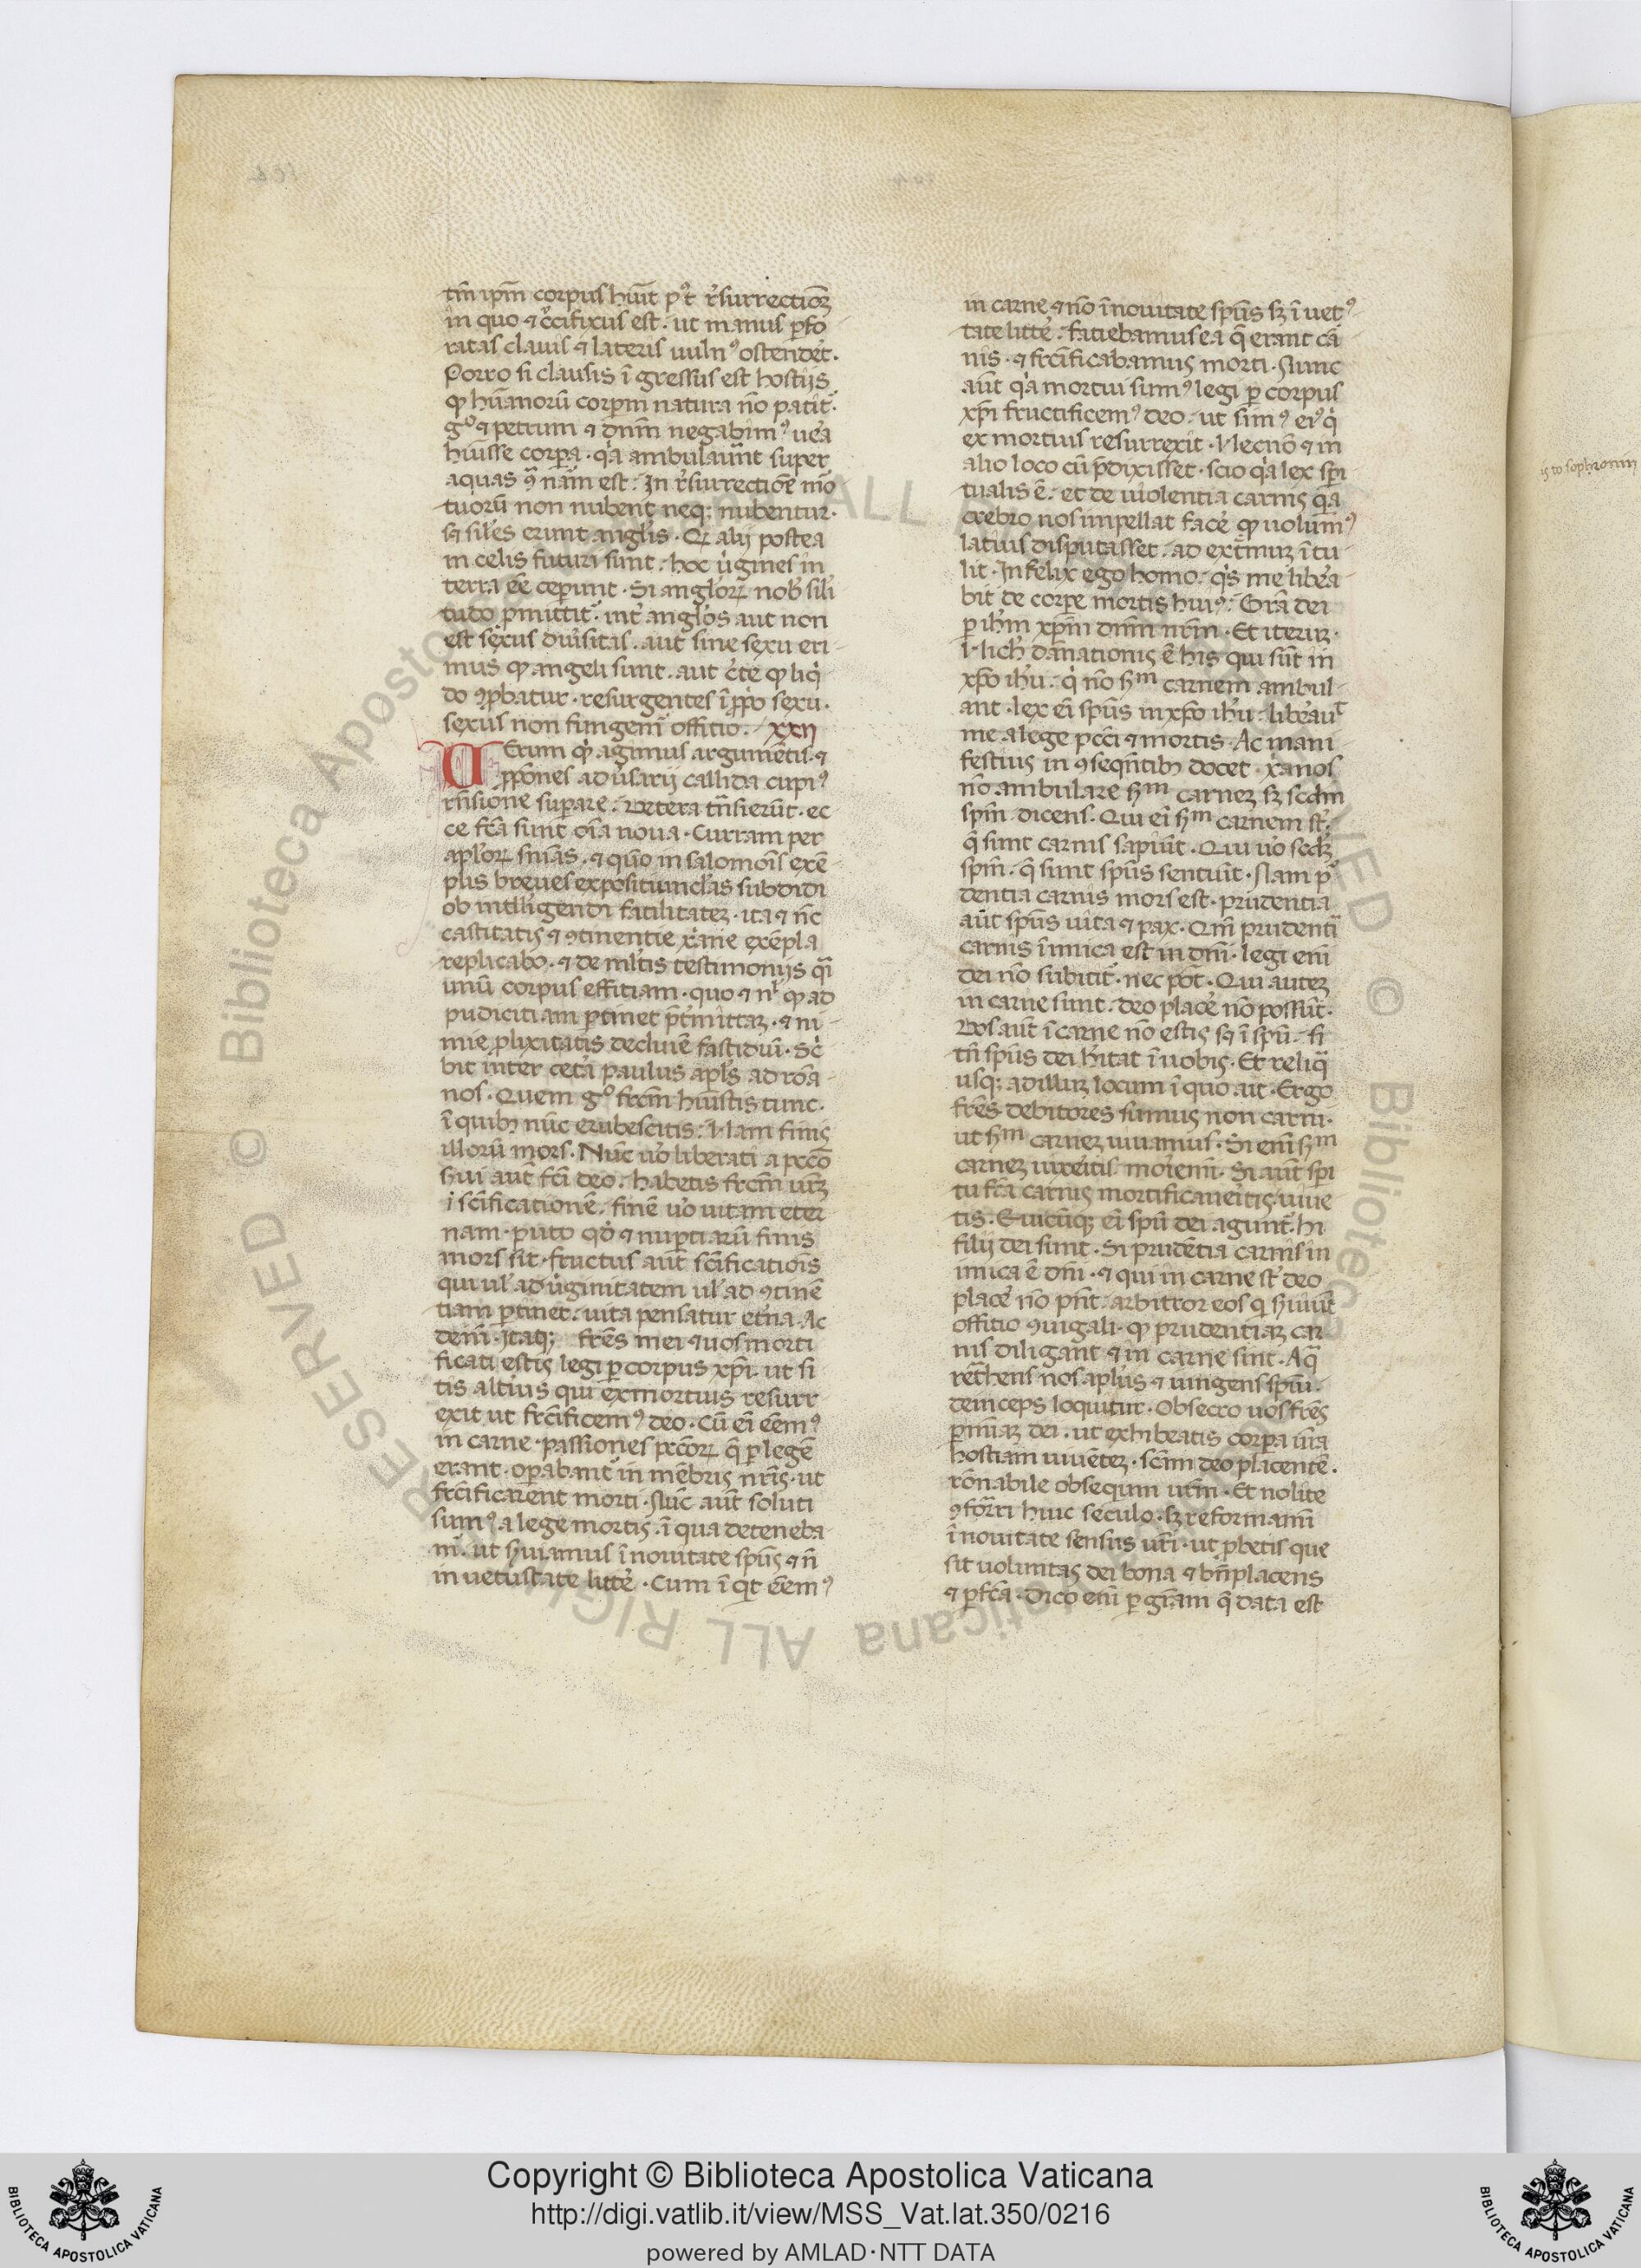 tm̄ ip̄m corpus hūit pꝰt r̄surrectioꝫ
in quo ⁊ c̄cifixus est. ut manus ꝑfo
ratas clauis ⁊ lateris uulnꝰ ostender̄t.
Porro si clausis ī gressus est hostijs
ꝙ hūanorū corpm natura nō patit᷑.
gͦ ⁊ petrum ⁊ dn̄m negabimꝰ uēa
hūisse corpa. qa ambulaūnt super
aquas ꝯ nām est. In r̄surrectiōe mō
tuorū non nubent neqꝫ nubentur.
sꝫ sil̄es erunt angl̄is. Qꝺ alij postea
in celis futuri sunt. hoc ūgines in
terra ēe ceperunt. Si angl̄oꝝ nob̄ sili
tudo ꝓmittit᷑. int̄ angl̄os aut non
est sexus diūsitas. aut sine sexu eri
mus ꝙ angeli sunt. aut c̄te ꝙ liq̇
do ꝯꝓbatur. resurgentes ī ꝓp̄o sexu.
sexus non fungem᷑ offitio. XXII
UErum qꝺ agimus argumētis. ⁊
ꝓp̄ones aduersarij callida cupiꝰ
rn̄sione supare. Vetera tn̄sierūt. ec
ce fc̄a sunt oīa noua. Curram per
apl̄oꝝ sn̄ias. ⁊ quō in salomōis exē
plis breues expositiunclas subdidi
ob intelligendi facilitateꝫ. ita ⁊ nc̄
castitatis ⁊ ꝯtinentie x̄ane exēpla
replicabo. ⁊ de ml̄tis testimonijs qͣi
unū corpus effitiam. quo ⁊ nl̄ ꝙ ad
pudicitiam ꝑtinet p̄tmittaꝫ. ⁊ ni
mie ꝓlixitatis decluiē fastidiūi. Sc̄
bit inter cetā paulus apl̄s ad rōa
nos. Quem gͦ frc̄m hūistis tunc.
ī quibꝫ nūc erubescitis. Nam finis
illorū mors. Nūc uō liberati a pccō
sui aūt fc̄i deo. habetis frc̄m ur̄ꝫ
ī sc̄ificationē. finē uō uitam eter
nam. puto qꝺ ⁊ nuptiarū finis
mors sit. fructus aūt sc̄ificatiōis
qui ul̄ ad ūginitatem ul̄ ad ꝯtinē
tiam ꝑtinet. uita pensatur et̄na. Ac
dein̄. Itaqꝫ fr̄es mei ⁊ uos morti
ficati estis legi ꝑ corpus xp̄i. ut si
tis altius qui ex mortuis resurr
exit ut frc̄ificemꝰ deo. Cū eī eēmꝰ
in carne. passiones pcc̄oꝝ q̄ ꝑ legē
erant. opabant᷑ in mēbris nr̄is. ut
frc̄ificarent morti. Nūc aūt soluti
sumꝰ a lege mortis. ī qua deteneba
m᷑. ut suiamus ī nouitate sp̄us ⁊ n̄
in uetustate litt̄e. Cum ī qt eēmꝰ
in carne ⁊ nō ī nouitate sp̄us sꝫ ī uetꝰ
tate litt̄e. faciebamus ea q̄ erant cā
nis. ⁊ frc̄ificabamus morti. Nunc
aūt qa mortui sumꝰ legi ꝑ corpus
xp̄i fructificemꝰ deo. ut simꝰ eiꝰ q̇
ex mortuis resurrexit. Necnō ⁊ in
alio loco cū p̄dixisset. scio qa lex sp̄i
tualis ē. et de uiolentia carnis qa
crebro nos impellat facē ꝙ nolumꝰ
latius disputasset. ad ext̄muꝫ ītu
lit. Infelix ego homo. q̇s me libēa
bit de corpe mortis huiꝰ. Grā dei
ꝑ ih̄m xp̄m dn̄m nr̄m. Et iteruꝫ.
Nichl̄ dānationis ē his qui sūt in
xp̄o ih̄u. q̇ nō sm carnem ambul
ant. lex eī sp̄us in xp̄o ih̄u. libēauͭ
me a lege pcc̄i ⁊ mortis. Ac mani
festius in ꝯseqn̄tibꝫ docet. x̄anos
nō ambulare sm carneꝫ sꝫ scdm
sp̄m dicens. Qui eī sm carnem st̄.
q̄ sunt carnis sapiūt. Qui uō scd̄ꝫ
sp̄m. q̄ sunt sp̄us sentiūt. Nam pͮ
dentia carnis mors est. prudentia
aūt sp̄us uita ⁊ pax. Qm̄ prudentͣ
carnis īimica est in dm̄. legi enī
dei nō subicit᷑. nec pōt. Qui auteꝫ
in carne sunt. deo placē nō possūt.
Vos aūt ī carne nō estis sꝫ ī sp̄u. si
tn̄ sp̄us dei hītat ī uobis. Et reliqͣ
usqꝫ ad illuꝫ locum ī quo ait. Ergo
fr̄es debitores sumus non carni.
ut sm carneꝫ uiuamus. Si enī sm
carneꝫ uixeītis. moriemī. Si aūt sp̄i
tu fc̄a carnis mortificaueītis uiue
tis. Quicūqꝫ eī sp̄u dei agunt᷑. hi
filij dei sunt. Si prudētia carnis in
imica ē dm̄. ⁊ qui in carne st̄ deo
placē nō pn̄t. arbitror eos q̇ suiūt
offitio ꝯiugali. ꝙ prudentiaꝫ car
nis diligant ⁊ in carne sint. Aqͣ
ret̄hens nos apl̄us ⁊ iungens sp̄ui.
deinceps loquitur. Obsecro uos fr̄es
ꝑ mīaꝫ dei. ut exhibeatis corpa ur̄a
hostiam uiuēteꝫ. sc̄am deo placentē.
rōnabile obsequium ur̄m. Et nolite
ꝯforāri huic seculo. sꝫ reformamī
ī nouitate sensus ur̄i. ut ꝓbetis que
sit uoluntas dei bona ⁊ bn̄placens
⁊ ꝑfc̄a. Dico enī ꝑ grām q̄ data est
Copyright © Biblioteca Apostolica Vaticana
http://digi.vatlib.it/view/MSS_Vat.lat.350/0216
powered by AMLAD·NTT DATA
BIBLIOTECA APOSTOLICA VATICANA
BIBLIOTECA APOSTOLICA VATICANA